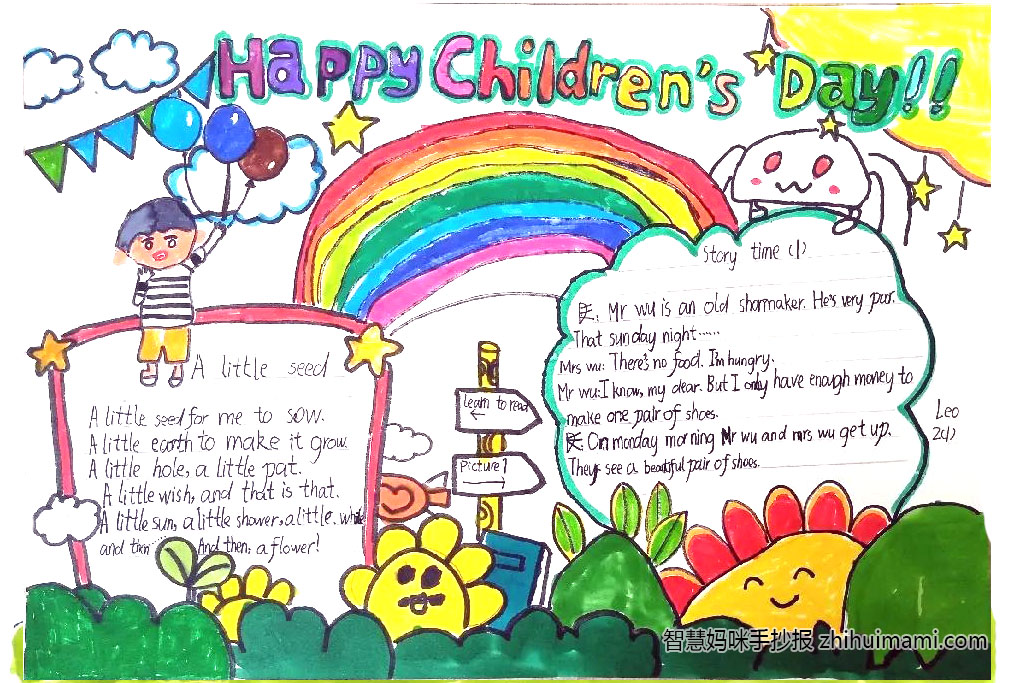 Happy Children's Day!!
A little seed
A little seed for me to sow.
A little earth to make it grow.
A little hole, a little pat.
A little wish, and that is that.
A little sun, a little shower, a little. while
and then And then; a flower!
learn to read
Picture 1
Story time (1)
Mr wu is an old shormaker. He's very pur.
That sunday night......
Mrs wu: There's no food. I'm hungry.
Mr wu: I know, my dear. But I only have enough money to
make one pair of shoes.
On monday morning Mr wu and mrs wu get up.
They see a beautiful pair of shoes.
Leo
2(4)
智慧妈咪手抄报 zhihuimami.com